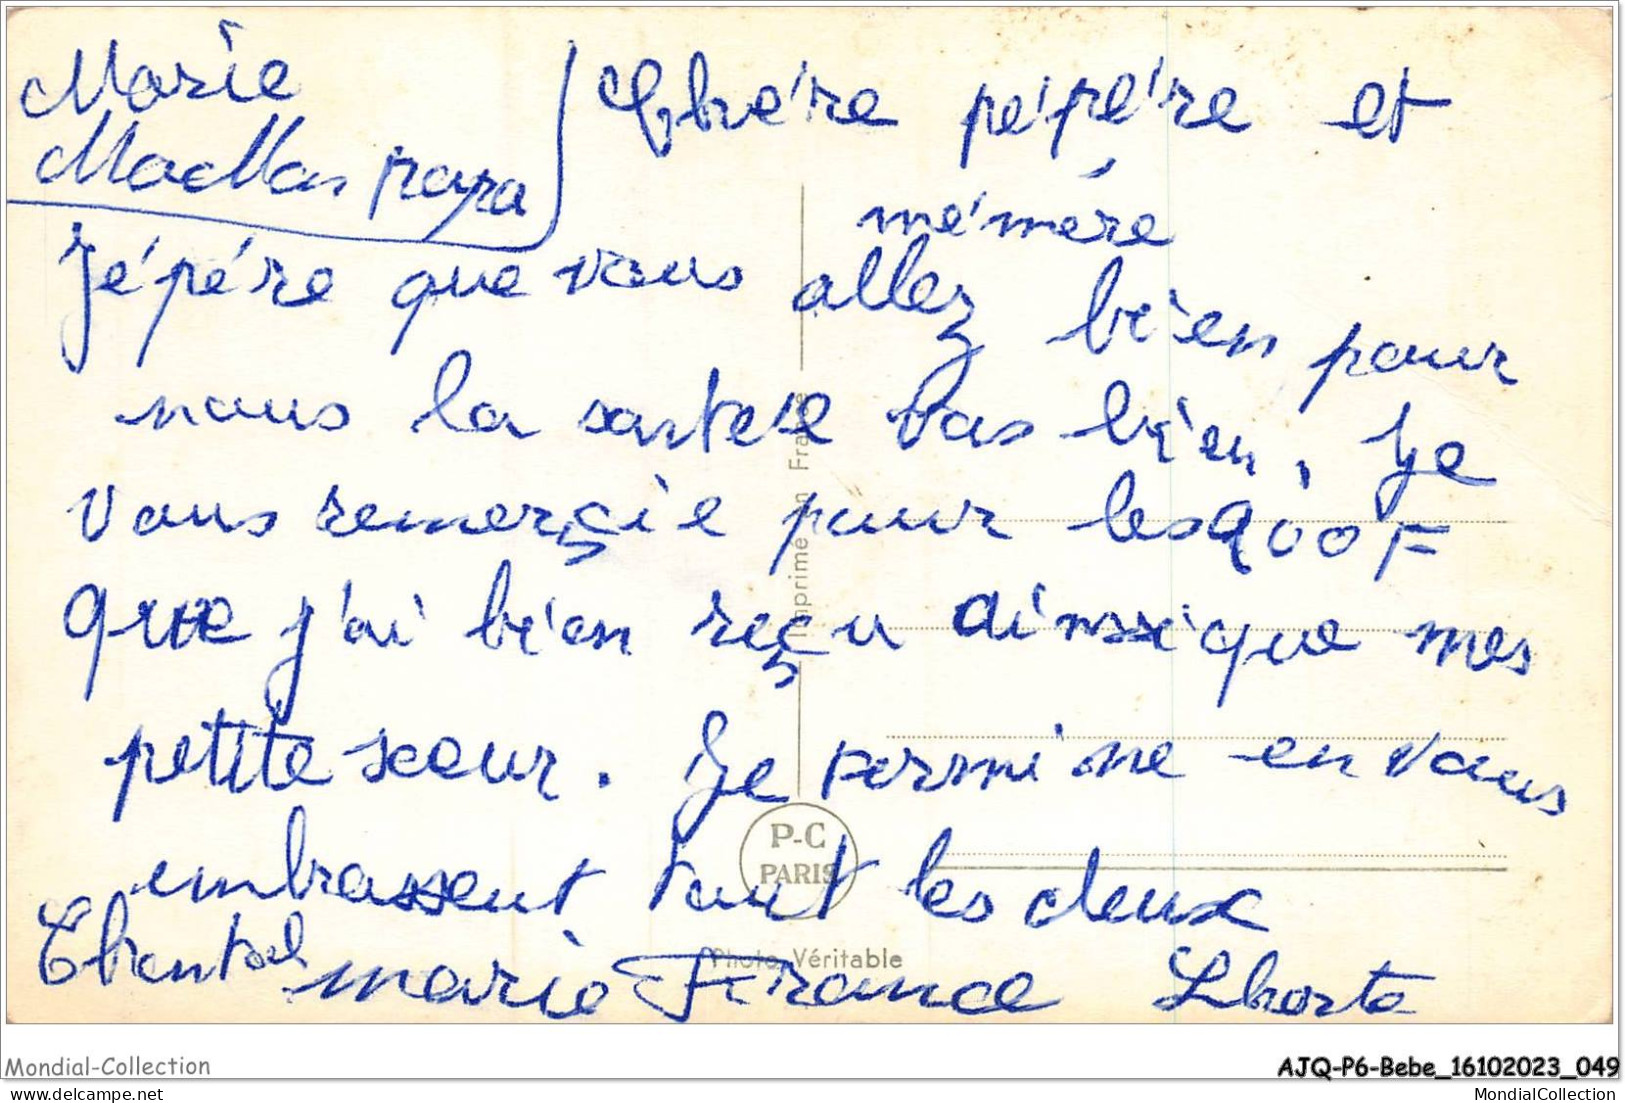 Chre're pe'pe're et
mé'mére
Je'pé're que vous allez bi'en pour
nous la santese vas bi'en. Je
vous remerçie pour les 900F
que j'ai bi'en reçu ainssi que mes
petite sœur. Je termine en vous
embrassent tout les deux
Chantal marie France Lhoste
Marie
MaMan papa
Imprimé en France
P-C
PARIS
Photo Véritable
Mondial-Collection
AJQ-P6-Bebe_16102023_049
www.delcampe.net
MondialCollection